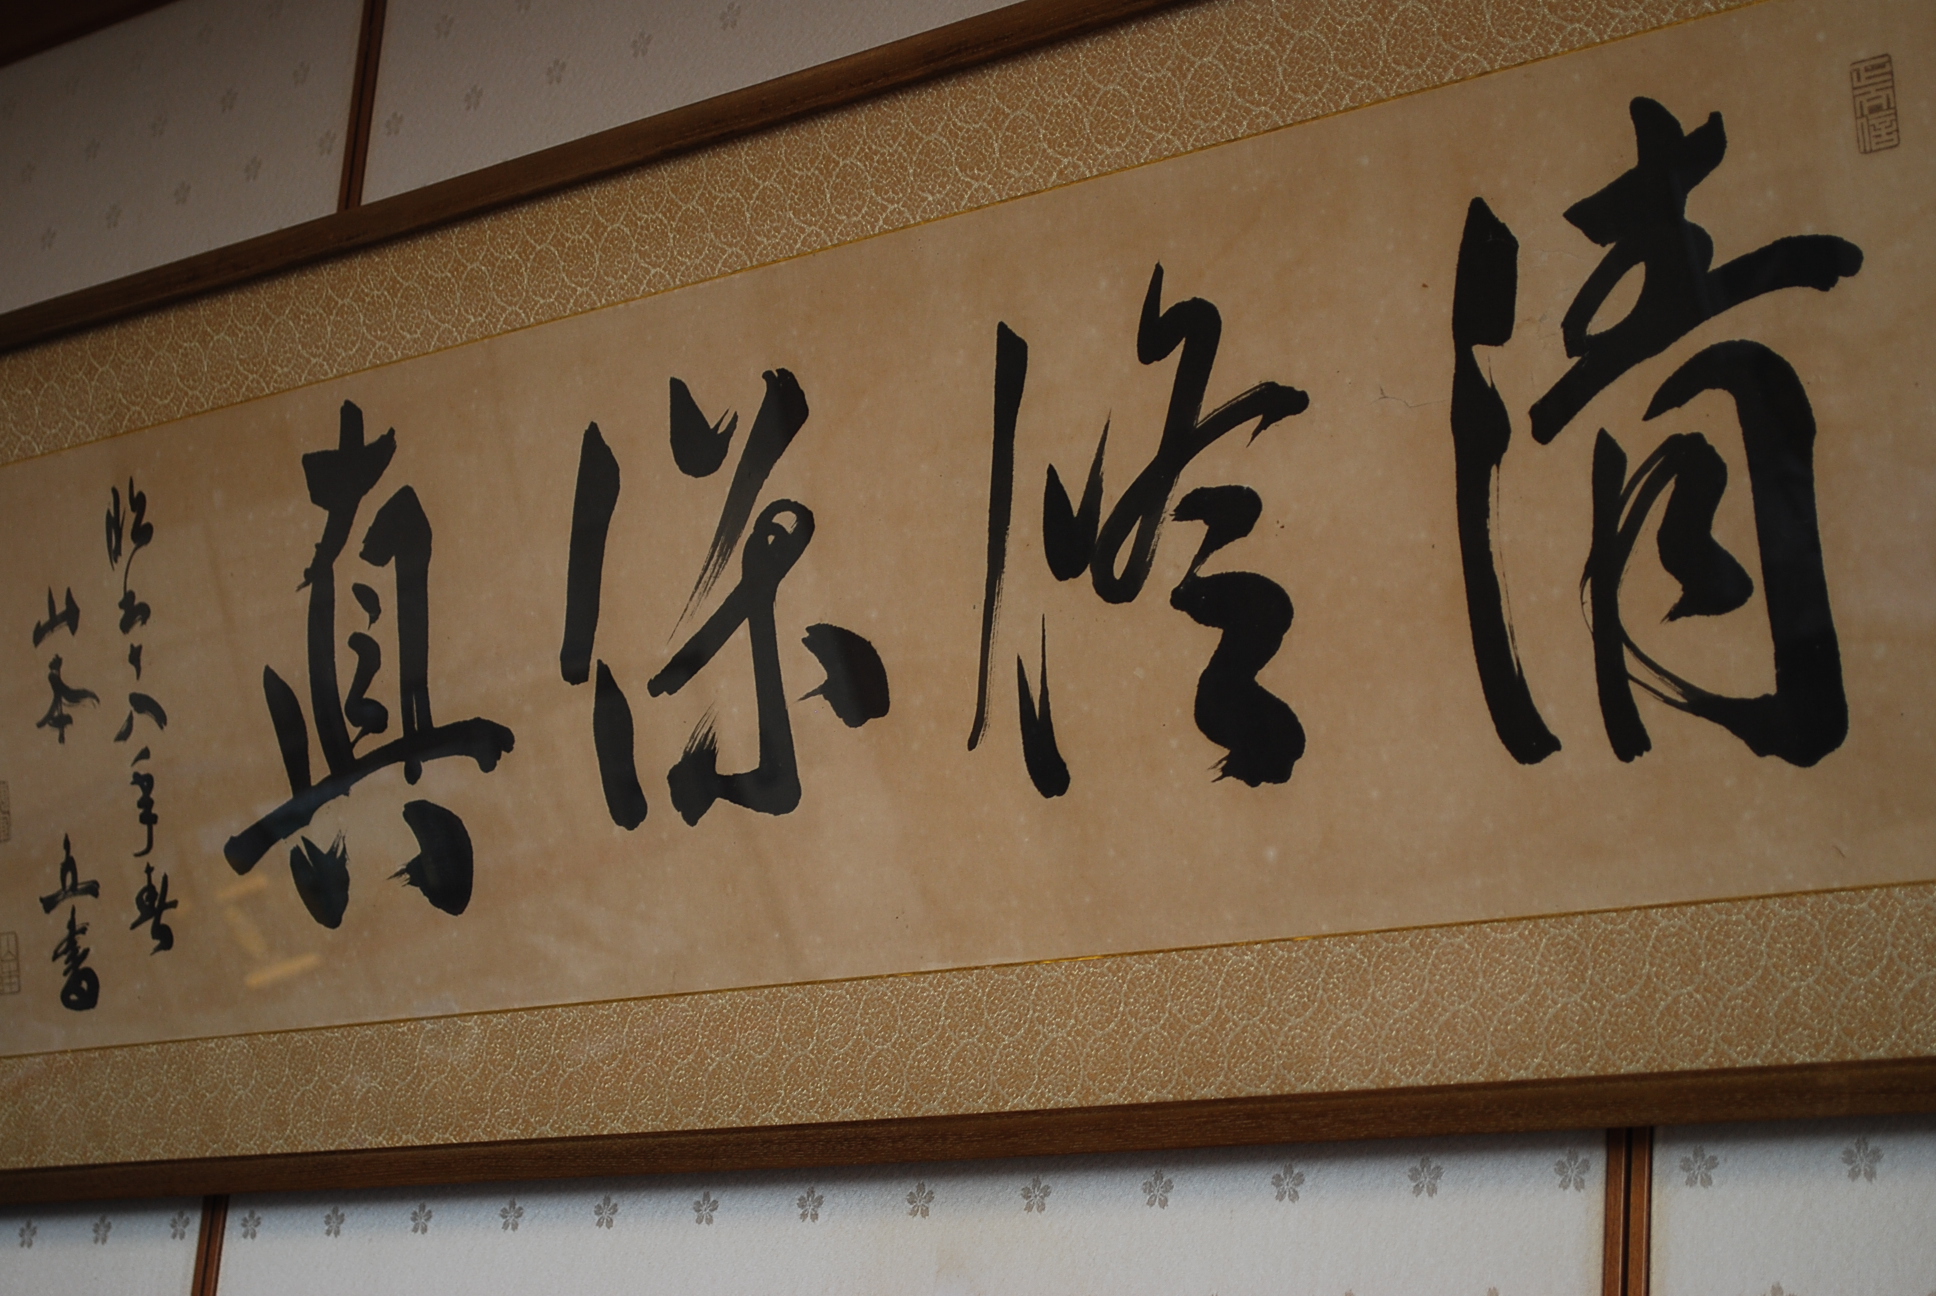 清修保真
昭和十八年春
山本 書